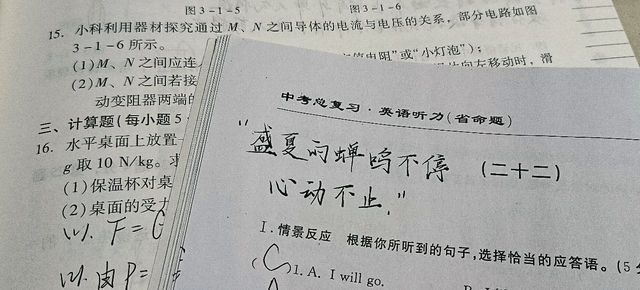 图3-1-5
图3-1-6
15. 小科利用器材探究通过 M、N 之间导体的电流与电压的关系，部分电路如图
3-1-6 所示。
(1)M、N 之间应连
电阻”或“小灯泡”)；
(2)M、N 之间若接
向左移动时，滑
动变阻器两端的
三、计算题(每小题5
16. 水平桌面上放置
g 取 10 N/kg。求
(1)保温杯对桌
(2)桌面的受力
(1). F=G
(2). 由P=
中考总复习·英语听力(省命题)
“盛夏的蝉鸣不停
(二十二)
心动不止.”
I. 情景反应 根据你所听到的句子,选择恰当的应答语。(5分
(C)1. A. I will go.